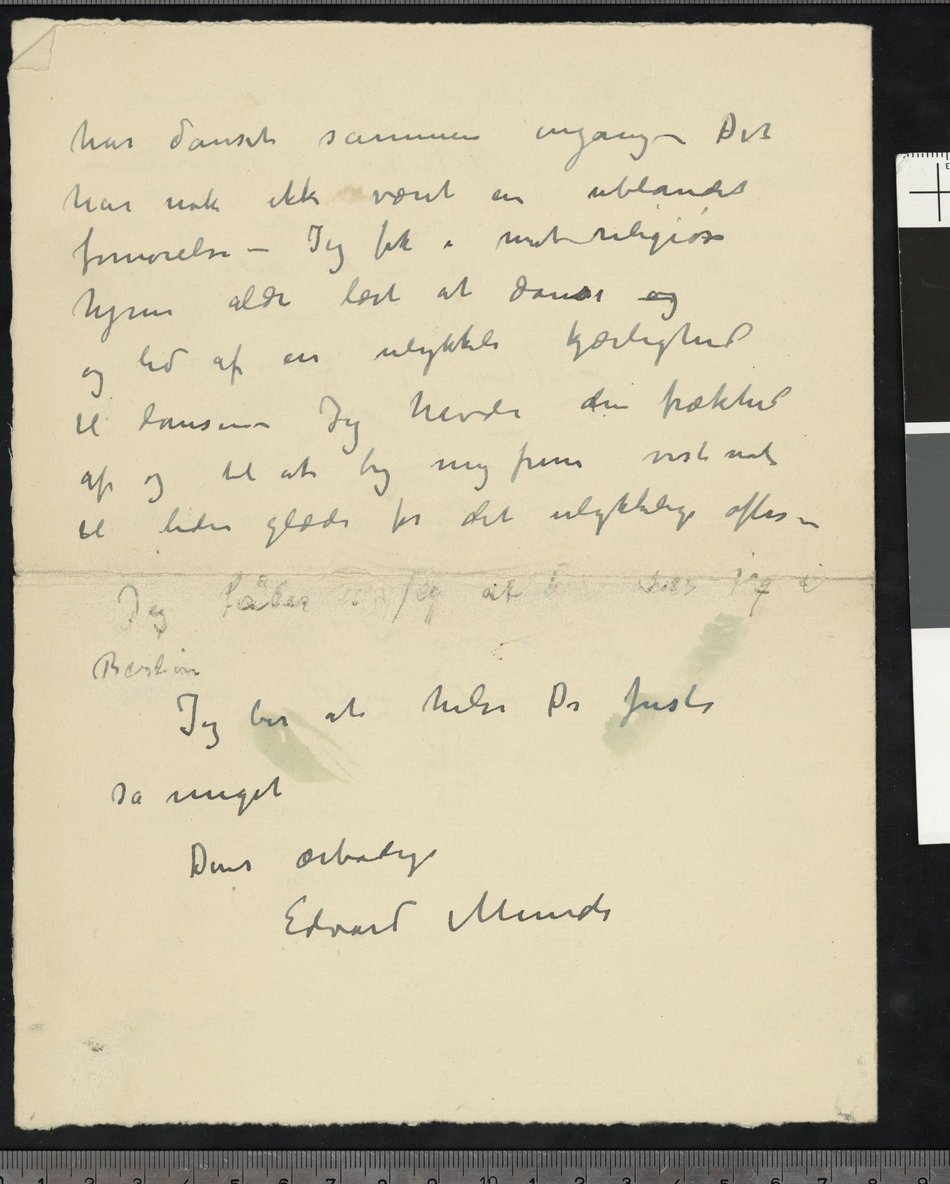 har danset sammen engang – Det
har nok ikke været en ublandet
fornøielse – Jeg fik i mit religiøse
hjem aldri lært at danse og
og led af en ulykkelig kjærlighed
til dansen – Jeg havde den frækhed
af og til at by mig frem vist nok
til liden glæde for det ulykkelige offer –
Jeg håber jeg at jeg i
Berlin
Jeg ber at hilse De
så meget
Deres ærbødige
Edvard Munch